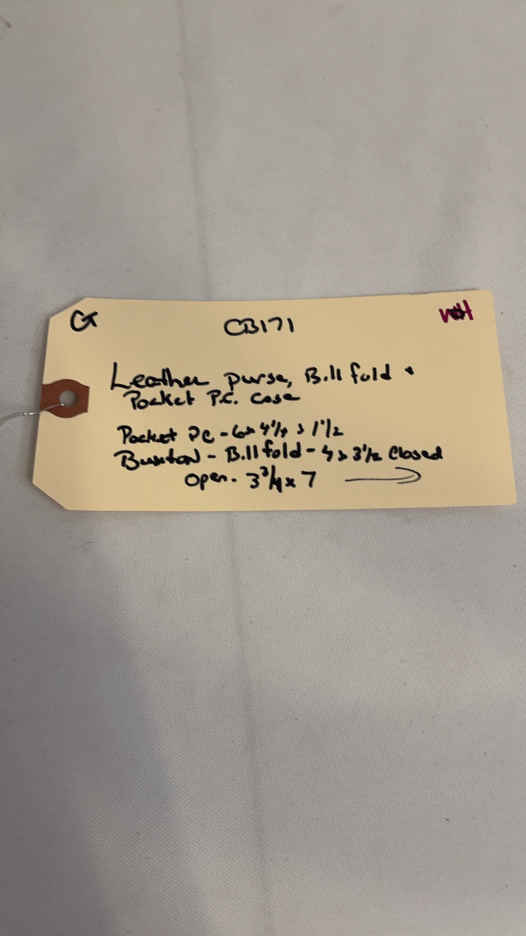 G CB171 WH
Leather purse, Billfold &
Pocket P.C. Case
Pocket PC - 6 x 4 1/4 x 1 1/2
Buxton - Billfold - 4 x 3 1/2 Closed
Open - 3 3/4 x 7 →